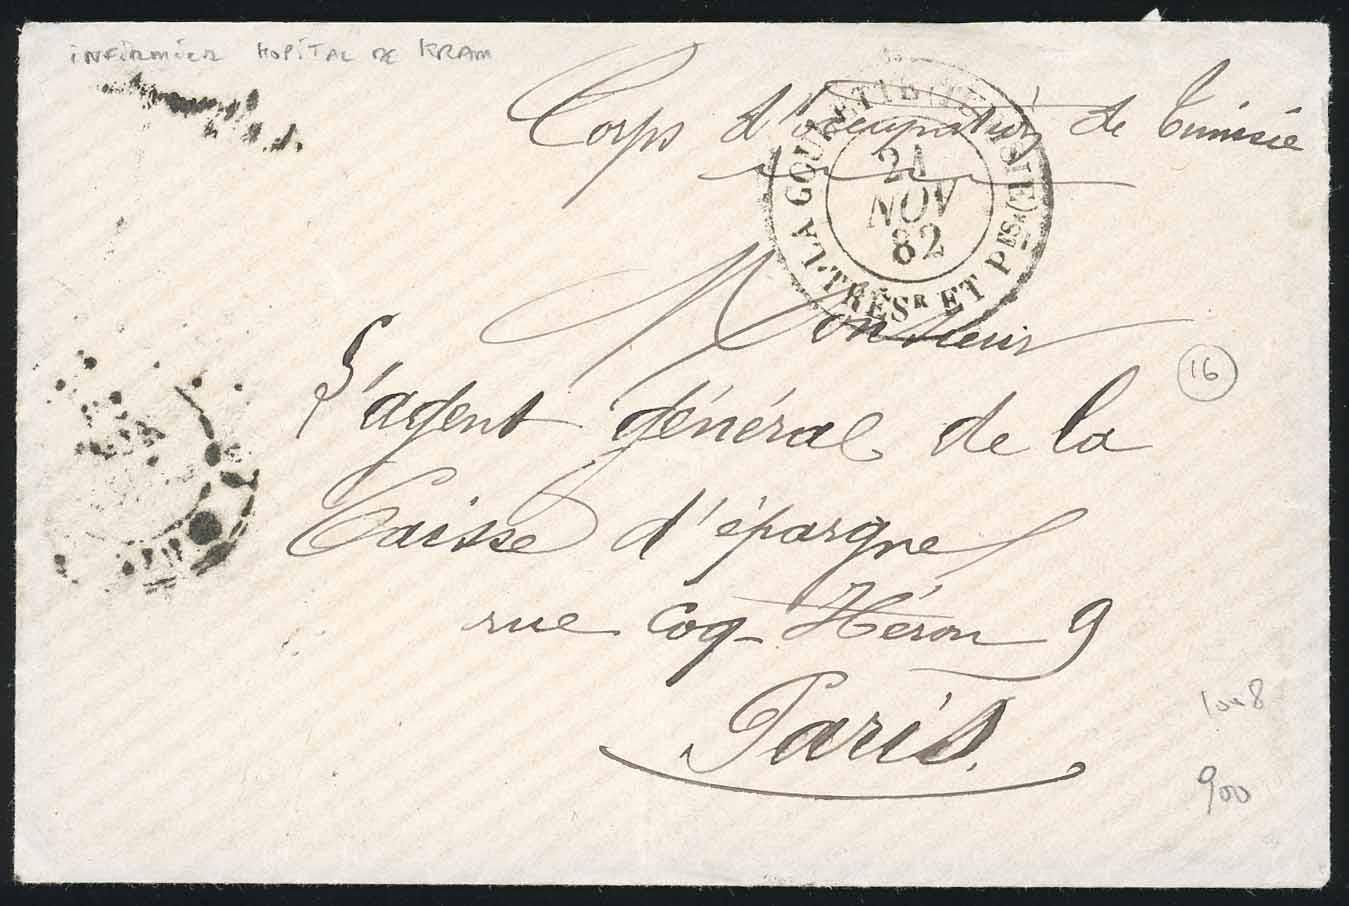 INFIRMIER HOPITAL DE KRAM
Corps d'occupation de Tunisie
LA GOULETTE (TUNISIE)
21
NOV
82
TRÉSR ET PTES
Monsieur
L'agent général de la
16
Caisse d'épargne
rue Coq-Héron 9
Paris.
900